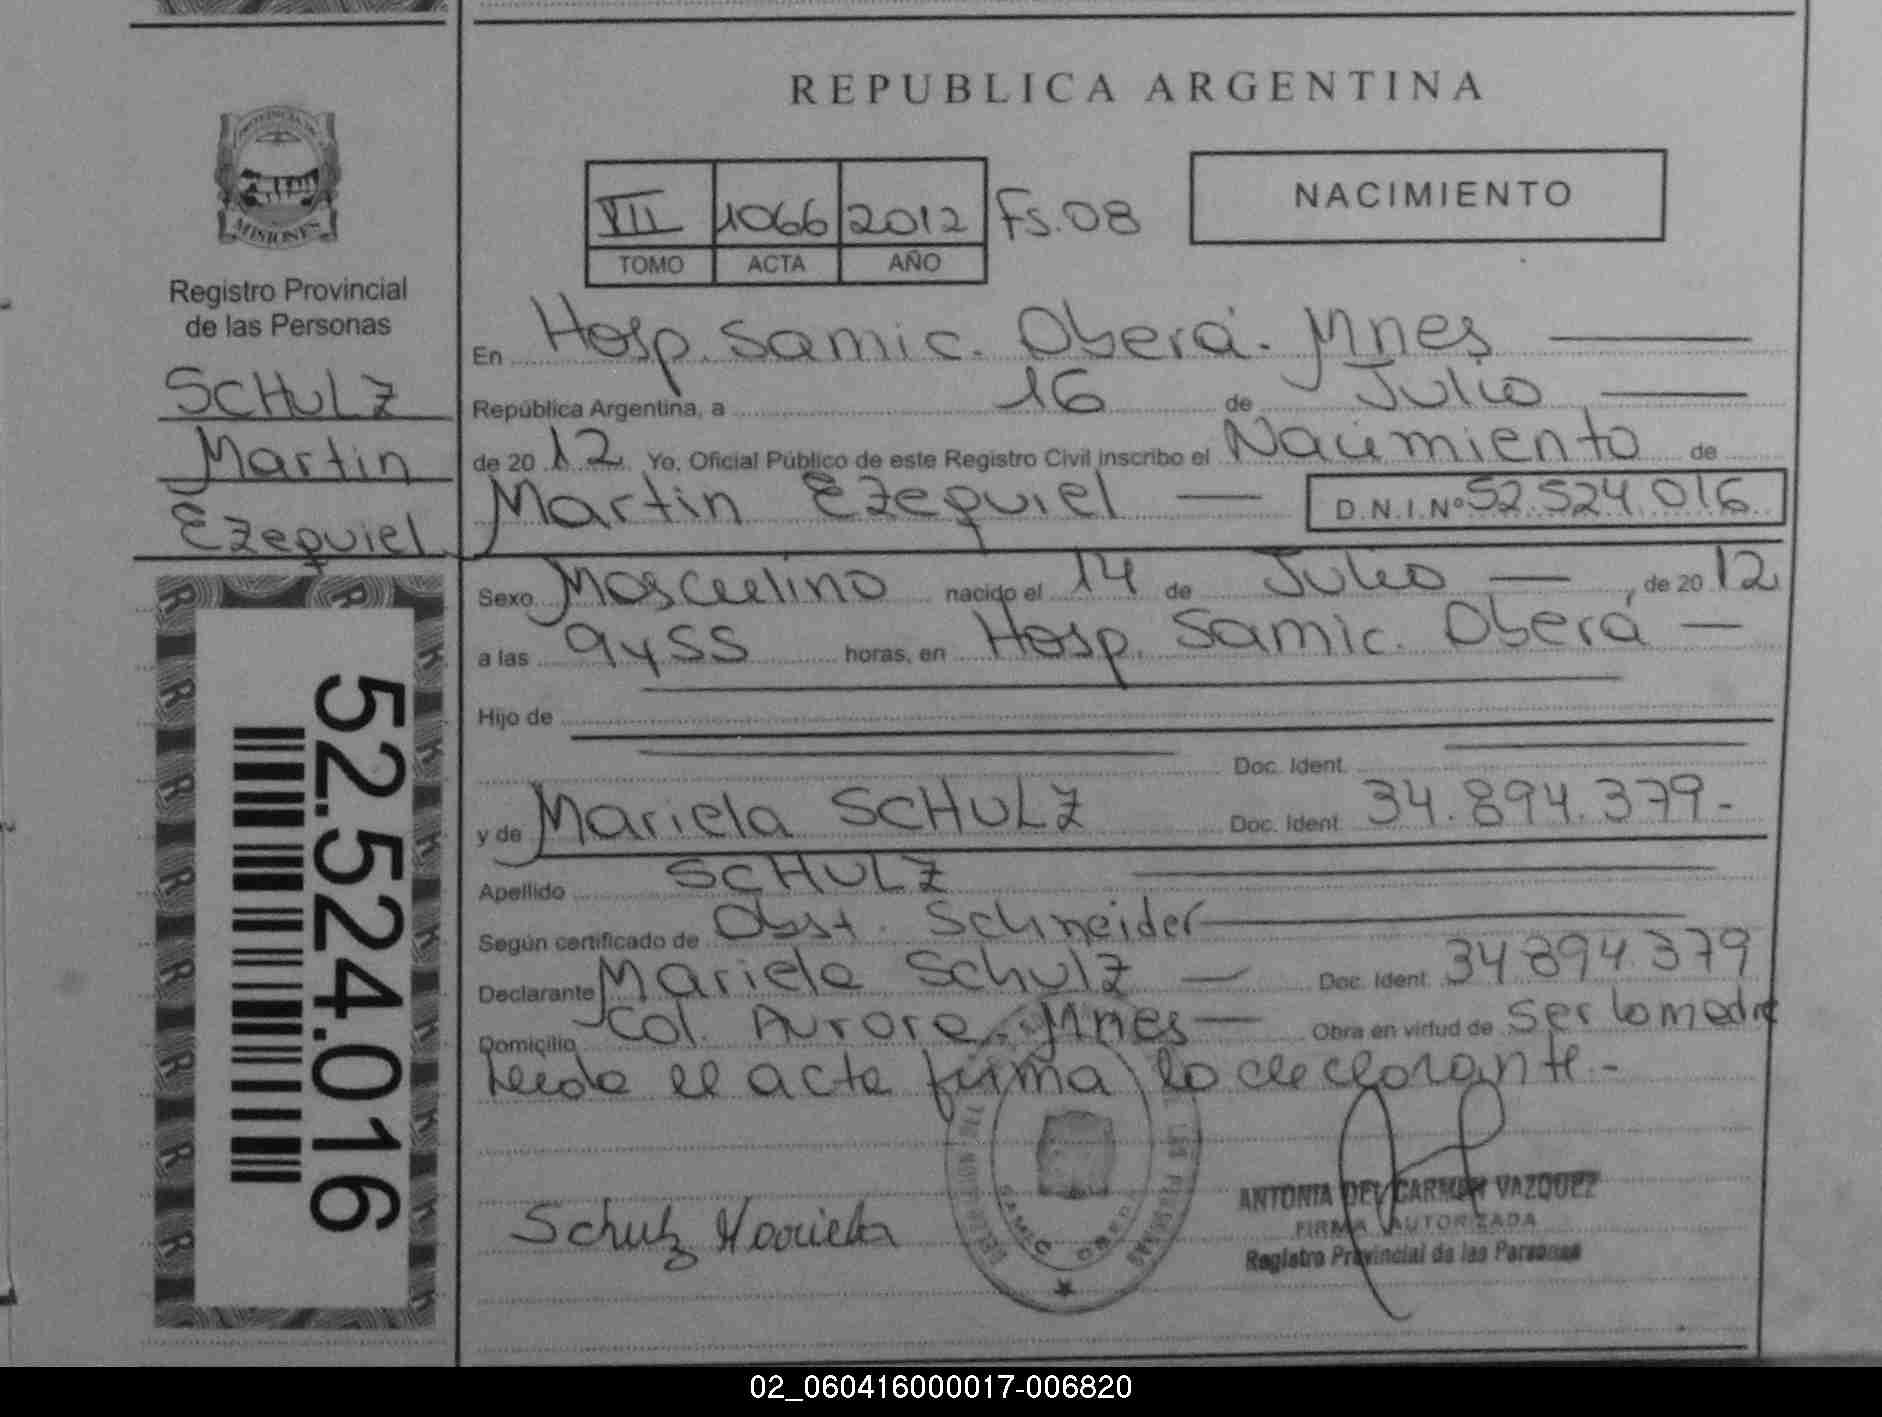 REPUBLICA ARGENTINA
PROVINCIA DE
MISIONES
Registro Provincial
de las Personas
SCHULZ
Martin
Ezequiel
52.524.016
VII 1066 2012 Fs.08
TOMO ACTA AÑO
NACIMIENTO
En Hosp. Samic. Oberá. Mnes
República Argentina, a 16 de Julio
de 20 12 Yo, Oficial Público de este Registro Civil inscribo el Nacimiento de
Martin Ezequiel D.N.I.Nº 52.524.016
Sexo Masculino nacido el 14 de Julio , de 20 12
a las 9y55 horas, en Hosp. Samic. Oberá
Hijo de
Doc. Ident.
y de Mariela SCHULZ Doc. Ident. 34.894.379.-
Apellido SCHULZ
Según certificado de Obst. Schneider
Declarante Mariela Schulz Doc. Ident. 34.894.379
Domicilio Col. Aurora. Mnes Obra en virtud de ser la madre
Leida el acta firma la declarante.-
Schulz Mariela
ANTONIA DEL CARMEN VAZQUEZ
FIRMA AUTORIZADA
Registro Provincial de las Personas
02_060416000017-006820